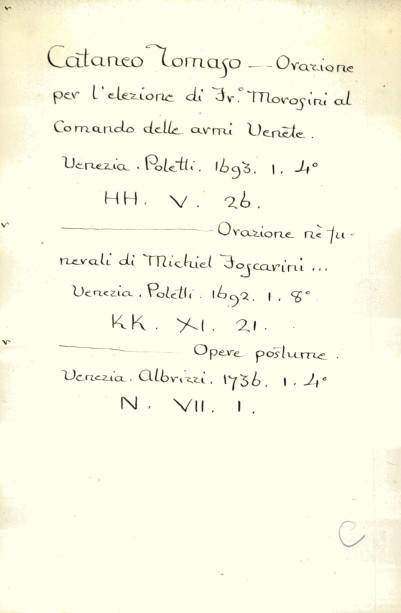 Cataneo Tomaso — Orazione
per l'elezione di Fr.º Morosini al
Comando delle armi Venete.
Venezia. Poletti. 1693. 1. 4º
HH. V. 26.
——— Orazione nè fu-
nerali di Michiel Foscarini...
Venezia. Poletti. 1692. 1. 8º
KK. XI. 21.
——— Opere postume.
Venezia. Albrizzi. 1736. 1. 4º
N. VII. 1.
C